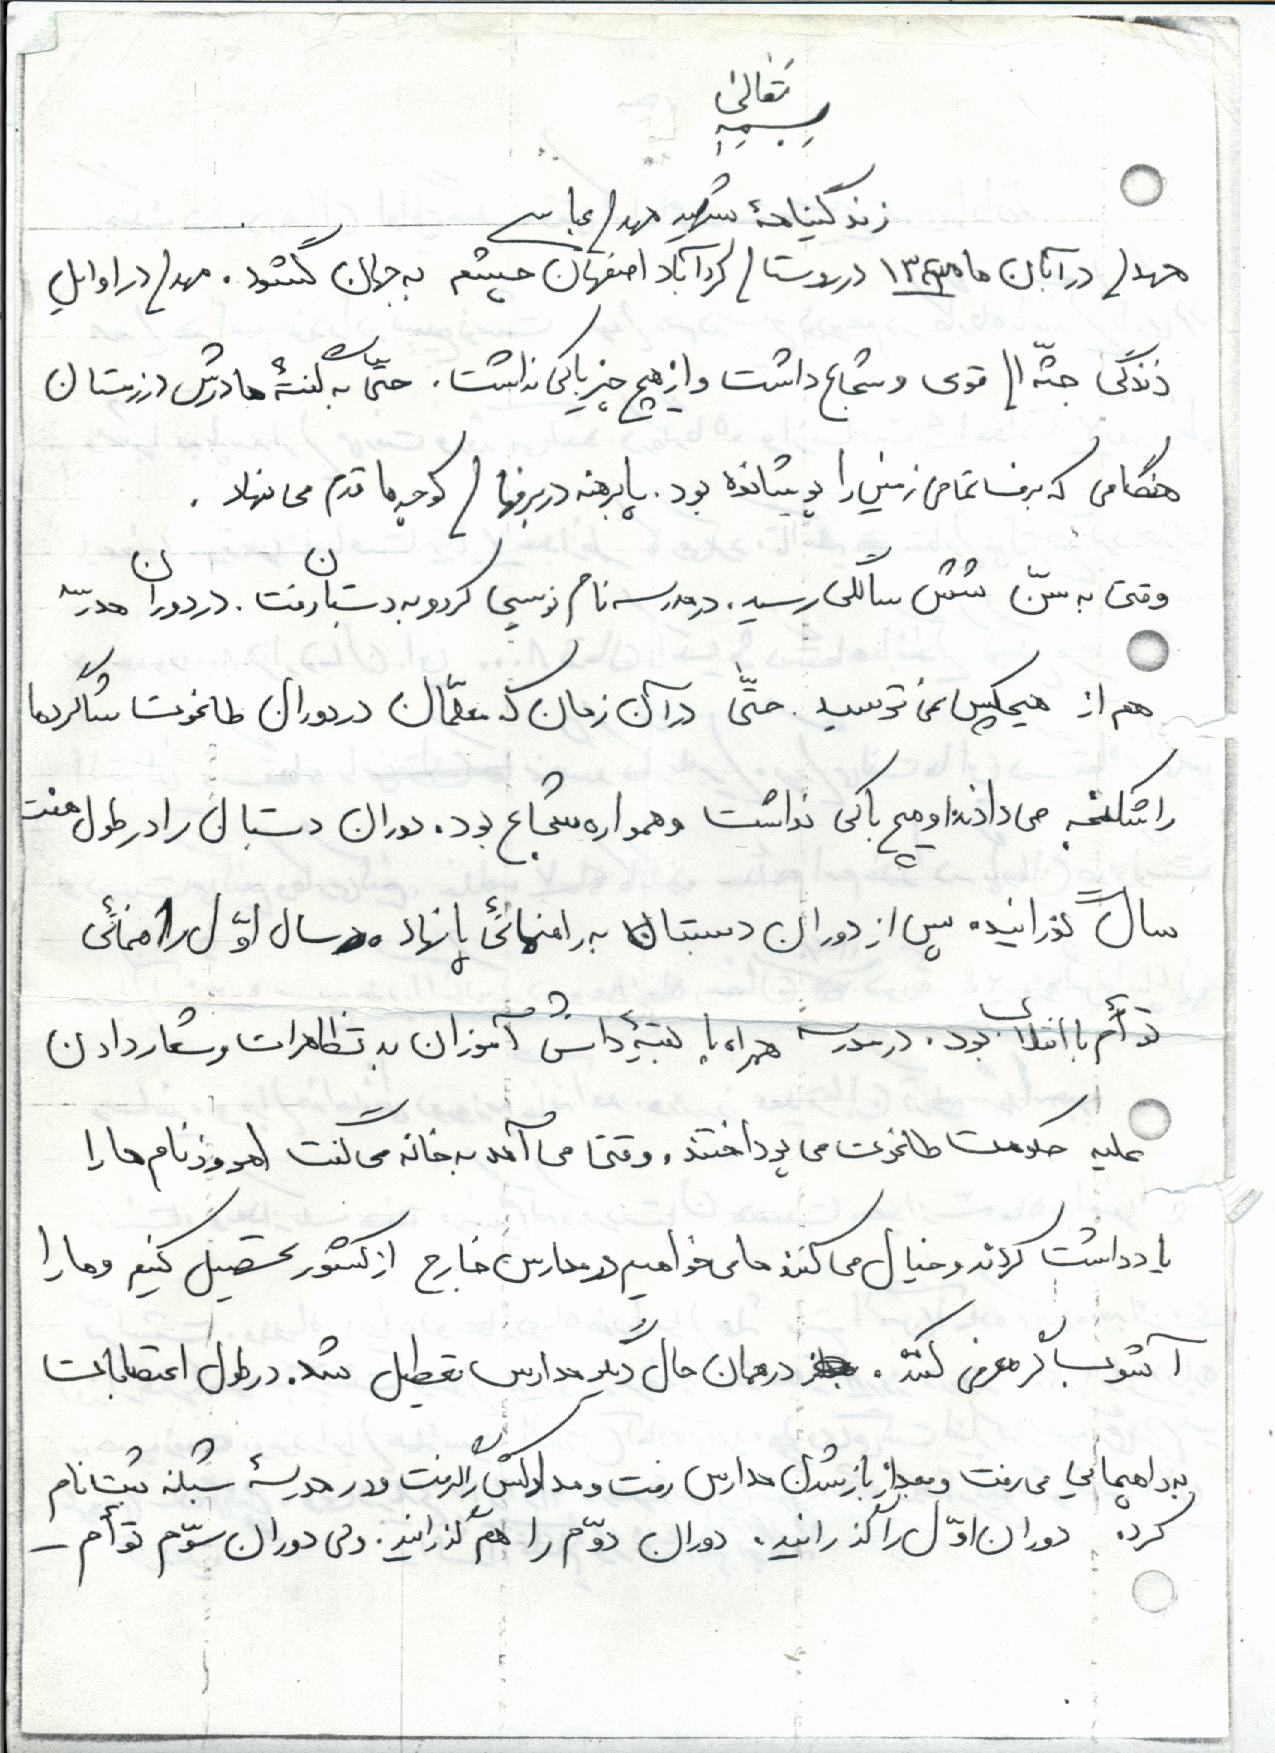 بسمه تعالی
زندگینامهٔ شهید مهدی عباسی
مهدی در آبان ماه در روستای گردآباد اصفهان چشم به جهان گشود. مهدی در اوایل
زندگی جثّه ای قوی و شجاع داشت و از هیچ چیز باکی نداشت. حتّی به گفتهٔ مادرش در زمستان
هنگامی که برف تمامی زمین را پوشانده بود. پابرهنه در برفهای کوچه ها قدم می نهاد.
وقتی به سنّ شش سالگی رسید. در مدرسه نام نویسی کرد و به دبستان رفت. در دوران مدرسه
هم از هیچکس نمی ترسید. حتّی در آن زمان که معلّمان در دوران طاغوت شاگردها
را شکنجه می دادند او هیچ باکی نداشت و همواره شجاع بود. دوران دبستان را در طول هفت
سال گذرانید. پس از دوران دبستان به راهنمائی پا نهاد. در سال اوّل راهنمائی
توأم با انقلاب بود. در مدرسه همراه با بقیّهٔ دانش آموزان به تظاهرات و شعار دادن
علیه حکومت طاغوت می پرداختند. وقتی می آمد به خانه می گفت امروز نام ما را
یادداشت کردند و خیال می کنند ما می خواهیم در مدارس خارج از کشور تحصیل کنیم و ما را
آشوب گر معرفی کنند. در همان حال دیگر مدارس تعطیل شد. در طول اعتصابات
به راهپیمائی می رفت و بعد از باز شدن مدارس رفت و مدارکش را گرفت و در مدرسهٔ شبانه ثبت نام
کرد. دوران اوّل را گذرانید. دوران دوّم را هم گذرانید. ولی دوران سوّم توأم _